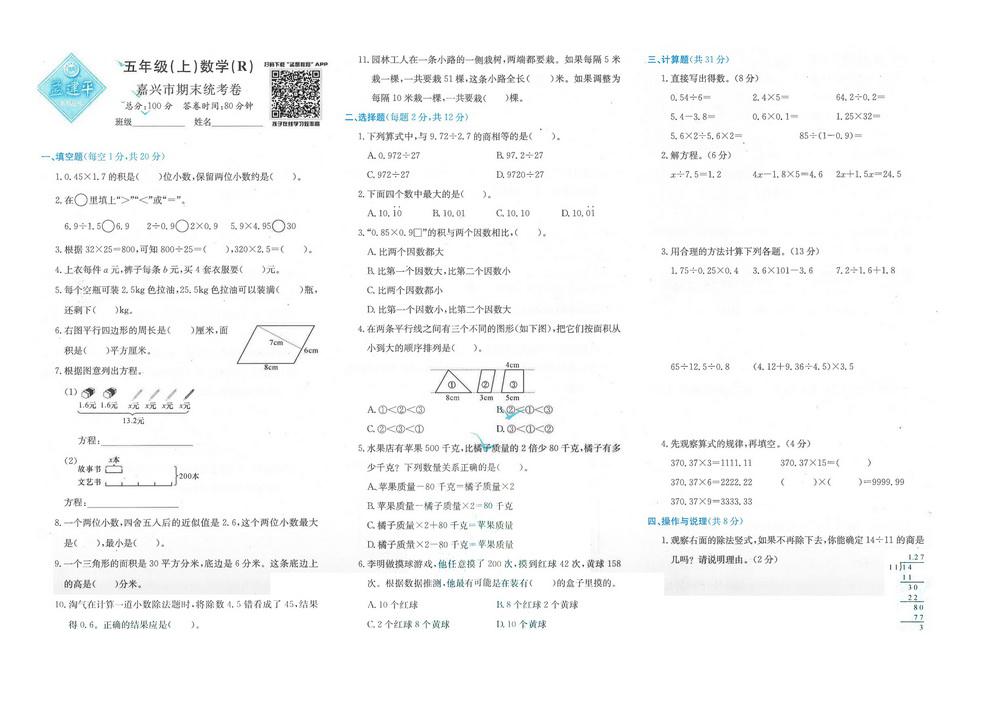 孟建平
五年级(上)数学(R)
嘉兴市期末统考卷
总分:100分 答卷时间:80分钟
班级 姓名
扫码下载“孟想教育”APP
一、填空题(每空1分,共20分)
1.0.45×1.7的积是( )位小数,保留两位小数约是( )。
2.在○里填上“>”“<”或“=”。
6.9÷1.5○6.9 2÷0.9○2×0.9 5.9×4.95○30
3.根据32×25=800,可知800÷25=( ),320×2.5=( )。
4.上衣每件a元,裤子每条b元,买4套衣服要( )元。
5.每个空瓶可装2.5kg色拉油,25.5kg色拉油可以装满( )瓶,
还剩下( )kg。
6.右图平行四边形的周长是( )厘米,面
积是( )平方厘米。
7cm
6cm
8cm
7.根据图意列出方程。
(1)
1.6元 1.6元 x元 x元 x元 x元
13.2元
方程:
(2)
x本
故事书
文艺书
200本
方程:
8.一个两位小数,四舍五入后的近似值是2.6,这个两位小数最大
是( ),最小是( )。
9.一个三角形的面积是30平方分米,底边是6分米。这条底边上
的高是( )分米。
10.淘气在计算一道小数除法题时,将除数4.5错看成了45,结果
得0.6。正确的结果应是( )。
11.园林工人在一条小路的一侧栽树,两端都要栽。如果每隔5米
栽一棵,一共要栽51棵,这条小路全长( )米。如果调整为
每隔10米栽一棵,一共要栽( )棵。
二、选择题(每题2分,共12分)
1.下列算式中,与9.72÷2.7的商相等的是( )。
A.0.972÷27 B.97.2÷27
C.972÷27 D.9720÷27
2.下面四个数中最大的是( )。
A.10.1̇0̇ B.10.01 C.10.10 D.10.0̇1̇
3.“0.85×0.9□”的积与两个因数相比,( )。
A.比两个因数都大
B.比第一个因数大,比第二个因数小
C.比两个因数都小
D.比第一个因数小,比第二个因数大
4.在两条平行线之间有三个不同的图形(如下图),把它们按面积从
小到大的顺序排列是( )。
4cm
① ② ③
8cm 3cm 5cm
A.①<②<③ B.②<①<③
C.②<③<① D.③<①<②
5.水果店有苹果500千克,比橘子质量的2倍少80千克,橘子有多
少千克?下列数量关系正确的是( )。
A.苹果质量-80千克=橘子质量×2
B.苹果质量-橘子质量×2=80千克
C.橘子质量×2+80千克=苹果质量
D.橘子质量×2-80千克=苹果质量
6.李明做摸球游戏,他任意摸了200次,摸到红球42次,黄球158
次。根据数据推测,他最有可能是在装有( )的盒子里摸的。
A.10个红球 B.8个红球2个黄球
C.2个红球8个黄球 D.10个黄球
三、计算题(共31分)
1.直接写出得数。(8分)
0.54÷6= 2.4×5= 64.2÷0.2=
5.4-3.8= 0.6×0.1= 1.25×32=
5.6×2÷5.6×2= 85÷(1-0.9)=
2.解方程。(6分)
x÷7.5=1.2 4x-1.8×5=4.6 2x+1.5x=24.5
3.用合理的方法计算下列各题。(13分)
1.75÷0.25×0.4 3.6×101-3.6 7.2÷1.6+1.8
65÷12.5÷0.8 (4.12+9.36÷4.5)×3.5
4.先观察算式的规律,再填空。(4分)
370.37×3=1111.11 370.37×15=( )
370.37×6=2222.22 ( )×( )=9999.99
370.37×9=3333.33
四、操作与说理(共8分)
1.观察右面的除法竖式,如果不再除下去,你能确定14÷11的商是
几吗?请说明理由。(2分)
1.27
11)14
11
30
22
80
77
3